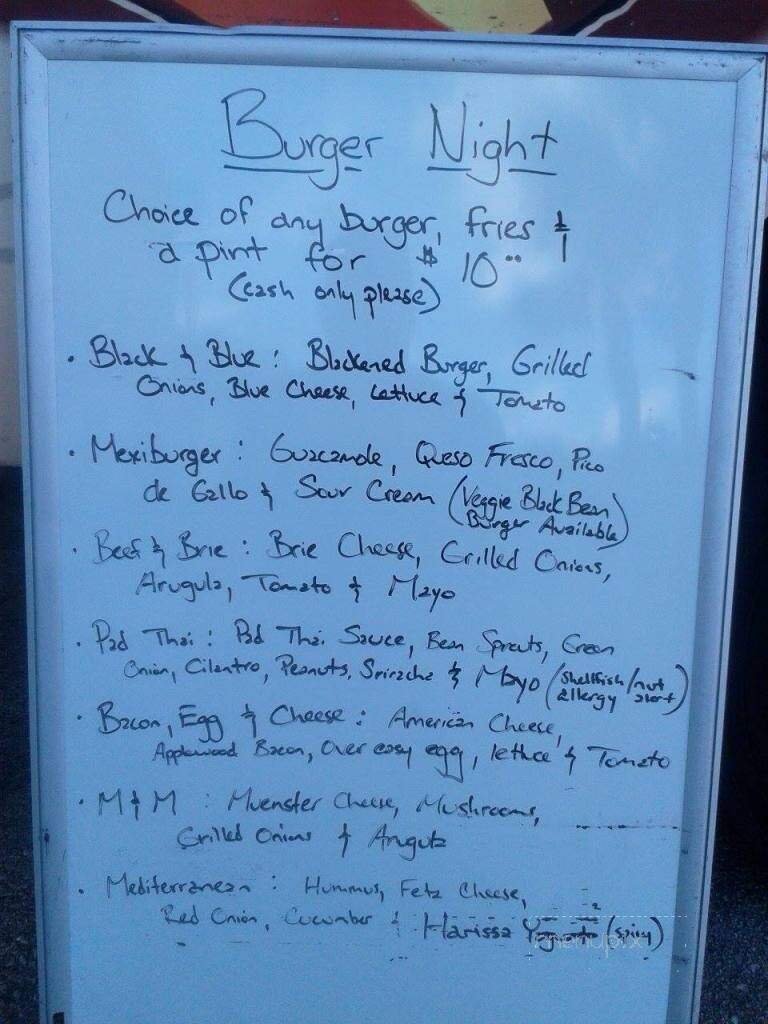 Burger Night
Choice of any burger, fries &
a pint for $ 10⁰⁰
(cash only please)
• Black & Blue : Blackened Burger, Grilled
Onions, Blue Cheese, Lettuce & Tomato
• Mexiburger : Guacamole, Queso Fresco, Pico
de Gallo & Sour Cream (Veggie Black Bean
Burger Available)
• Beef & Brie : Brie Cheese, Grilled Onions,
Arugula, Tomato & Mayo
• Pad Thai : Pad Thai Sauce, Bean Sprouts, Green
Onion, Cilantro, Peanuts, Sriracha & Mayo (Shellfish/nut
allergy alert)
• Bacon, Egg & Cheese : American Cheese,
Applewood Bacon, over easy egg, lettuce & Tomato
• M & M : Muenster Cheese, Mushrooms,
Grilled Onions & Arugula
• Mediterranean : Hummus, Feta Cheese,
Red Onion, Cucumber & Harissa (spicy)
menupix